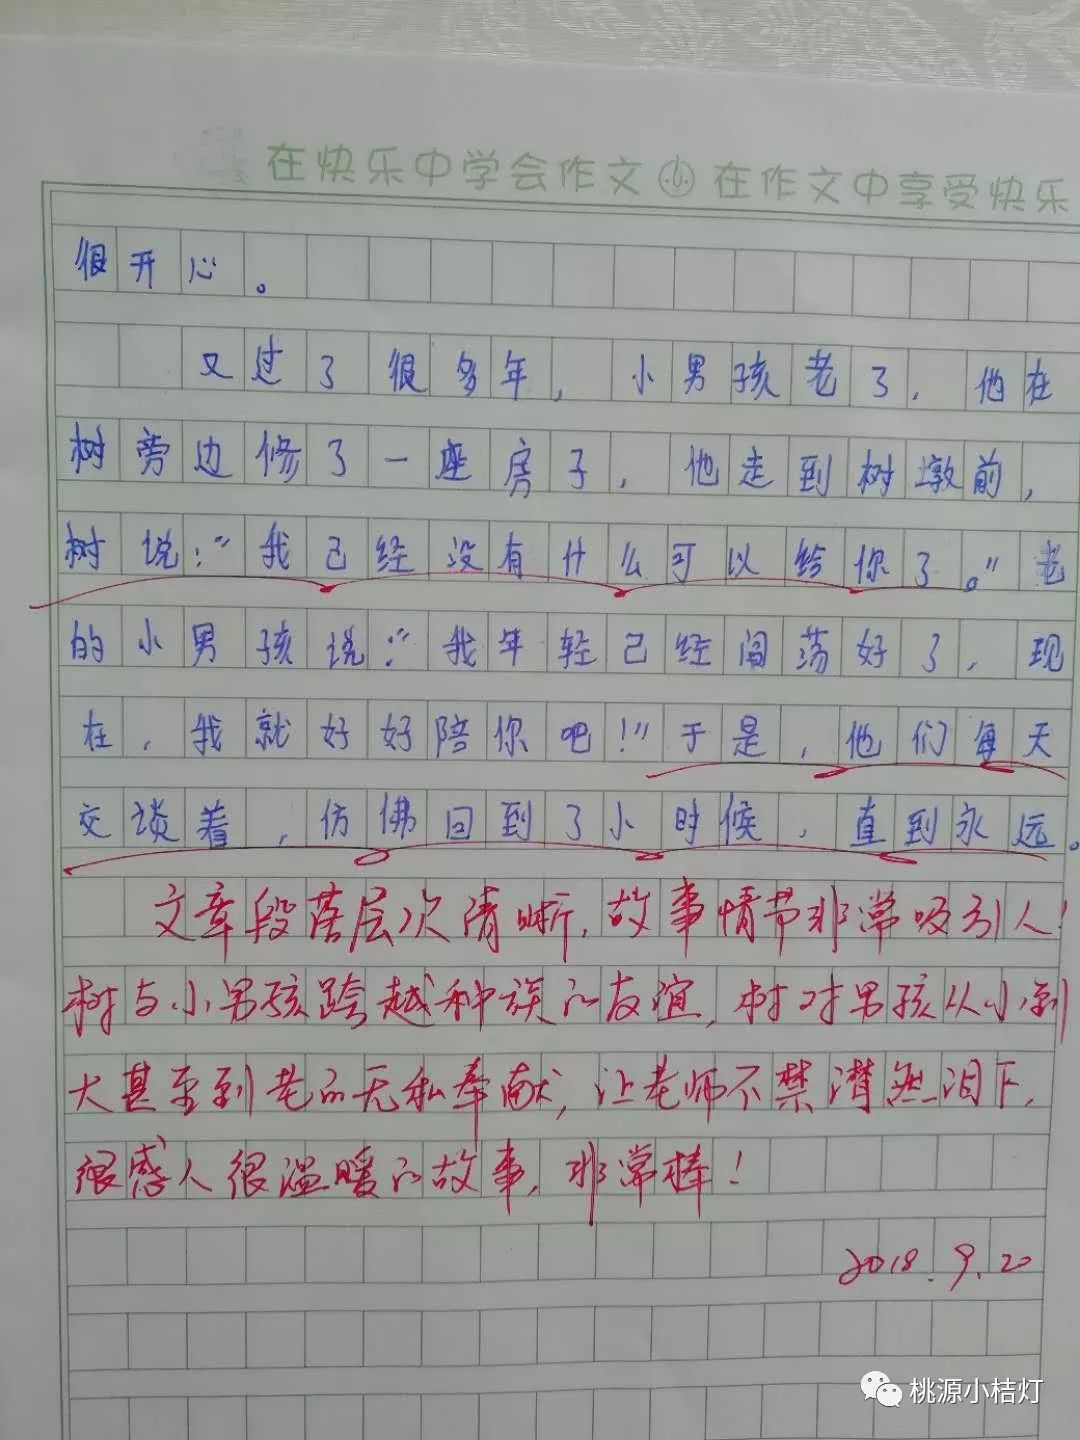 在快乐中学会作文 在作文中享受快乐
很开心。
又过了很多年,小男孩老了,他在
树旁边修了一座房子,他走到树墩前,
树说:“我已经没有什么可以给你了。”老
的小男孩说:“我年轻已经闯荡好了,现
在,我就好好陪你吧!”于是,他们每天
交谈着,仿佛回到了小时候,直到永远。
文章段落层次清晰,故事情节非常吸引人!
树与小男孩跨越种族的友谊,树对男孩从小到
大甚至到老的无私奉献,让老师不禁潸然泪下,
很感人很温暖的故事,非常棒!
2018.9.20
桃源小桔灯